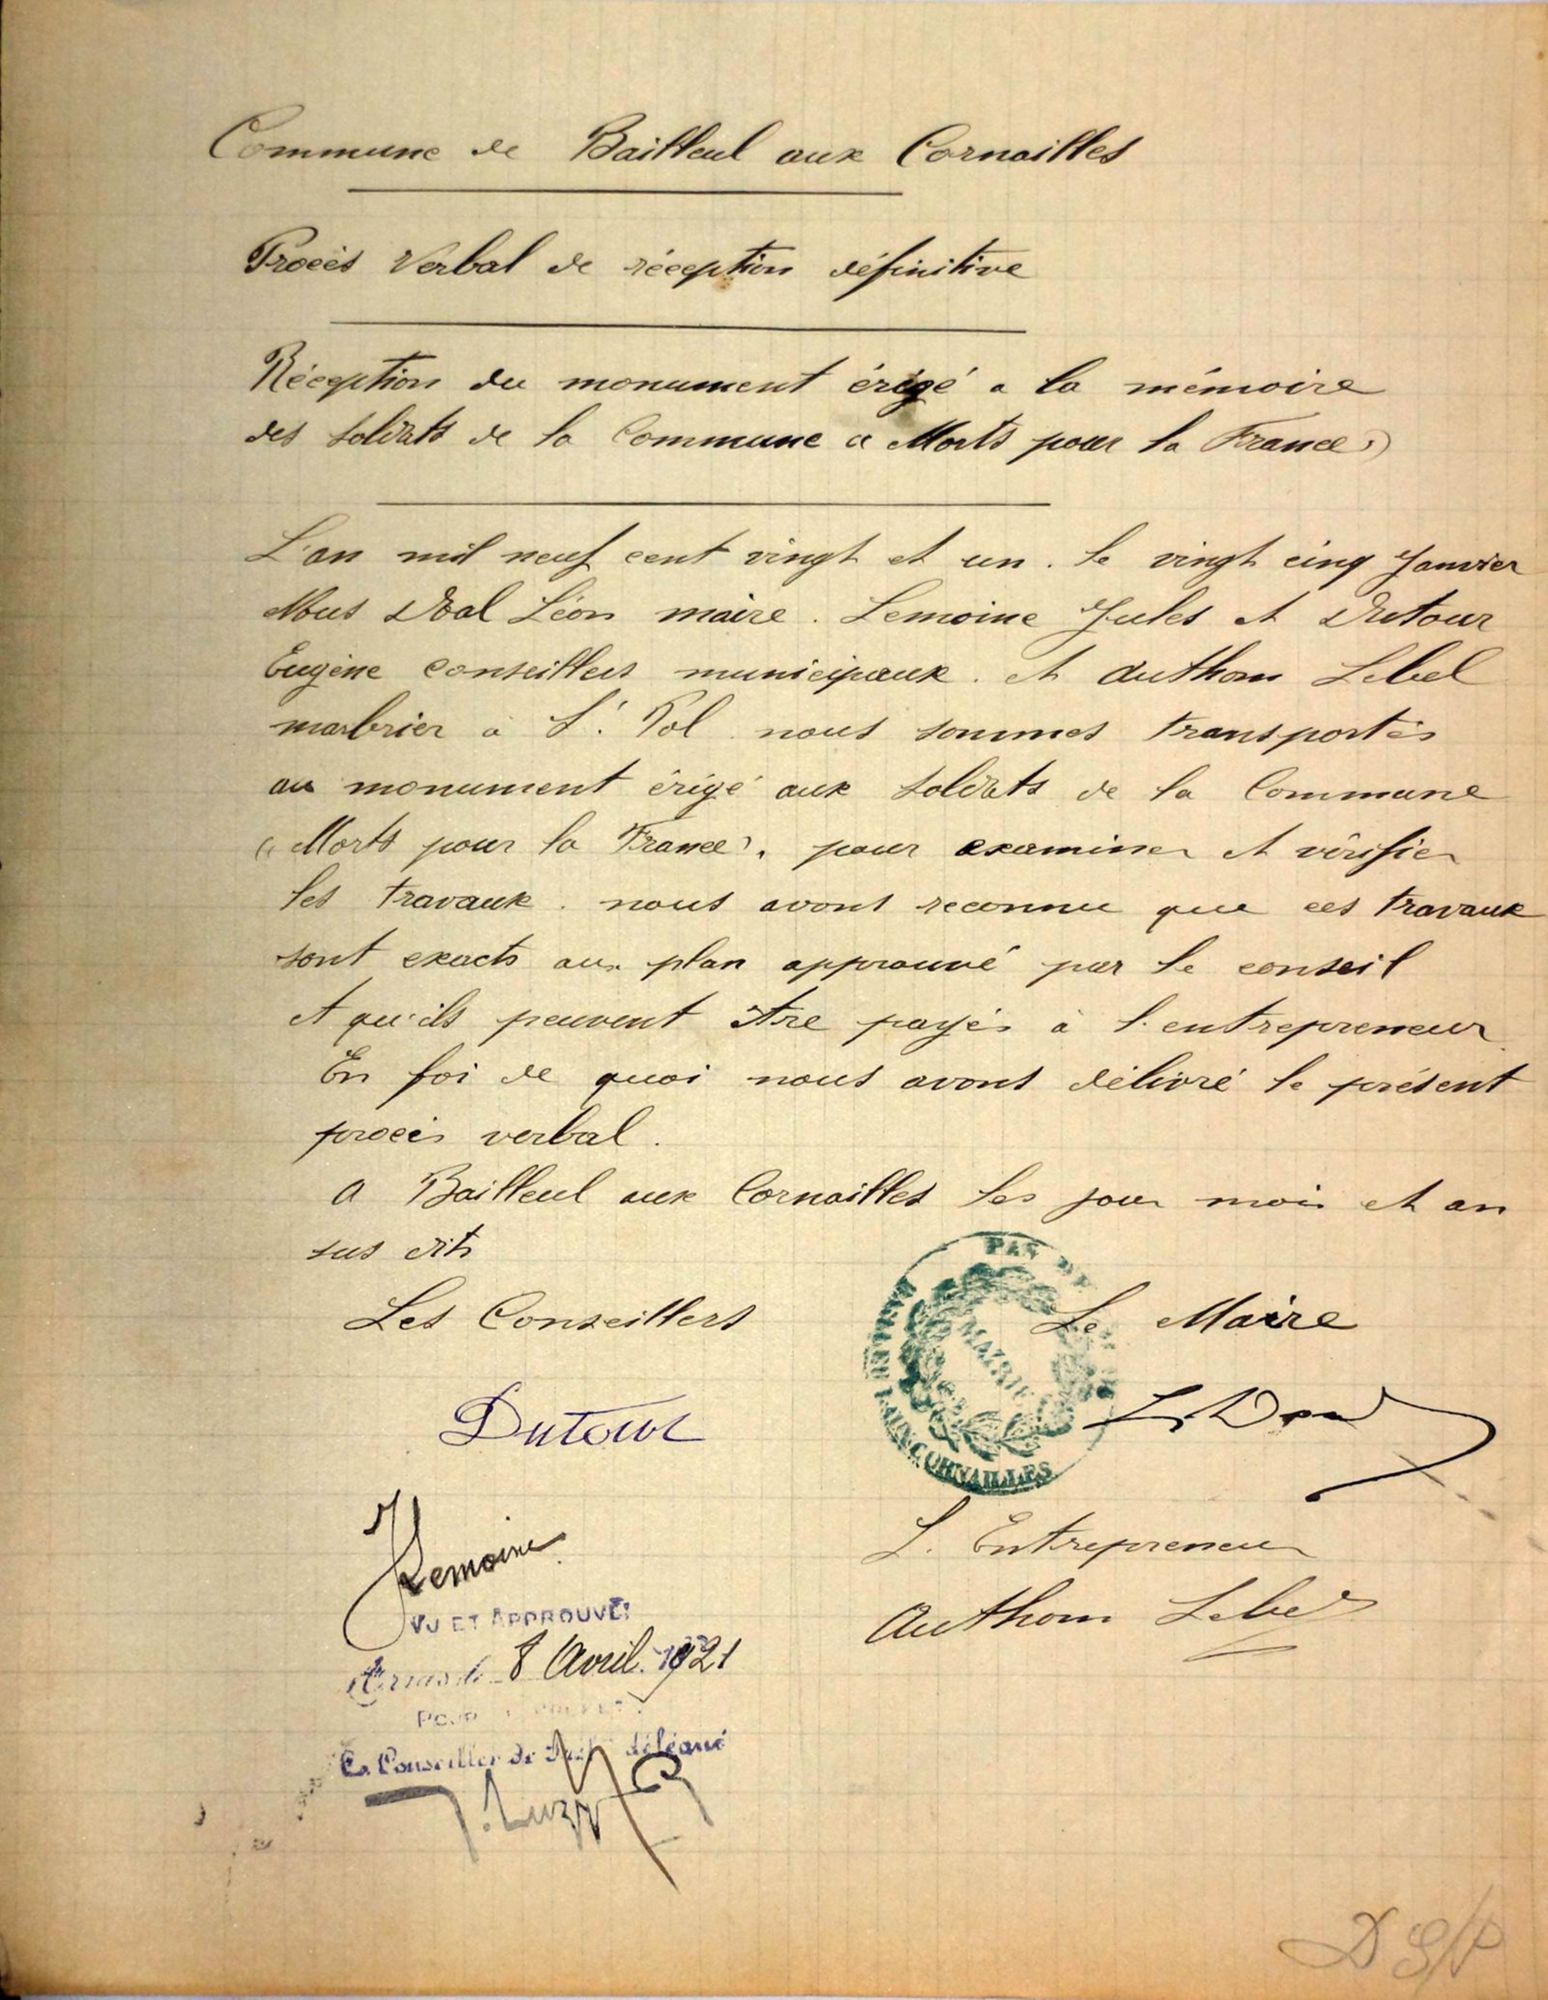 Commune de Bailleul aux Cornailles
Procès Verbal de réception définitive
Réception du monument érigé a la mémoire
des soldats de la Commune « Morts pour la France »
L'an mil neuf cent vingt et un. le vingt cinq Janvier
Nous Doal Léon maire. Lemoine Jules et Dutour
Eugène conseillers municipaux. et Authom Lebel
marbrier à St. Pol nous sommes transportés
au monument érigé aux soldats de la Commune
« Morts pour la France ». pour examiner et vérifier
les travaux. nous avons reconnu que ces travaux
sont exacts au plan approuvé par le conseil
et qu'ils peuvent être payés à l'entrepreneur
En foi de quoi nous avons délivré le présent
procès verbal.
A Bailleul aux Cornailles les jour mois et an
sus dits
Les Conseillers
Le Maire
PAS DE
MAIRIE
AUX CORNAILLES
Dutour
L'Entrepreneur
JLemoine
Authom Lebel
VU ET APPROUVÉ:
Arras le 8 Avril 1921
POUR LE PREFET:
Le Conseiller de Préfre délégué